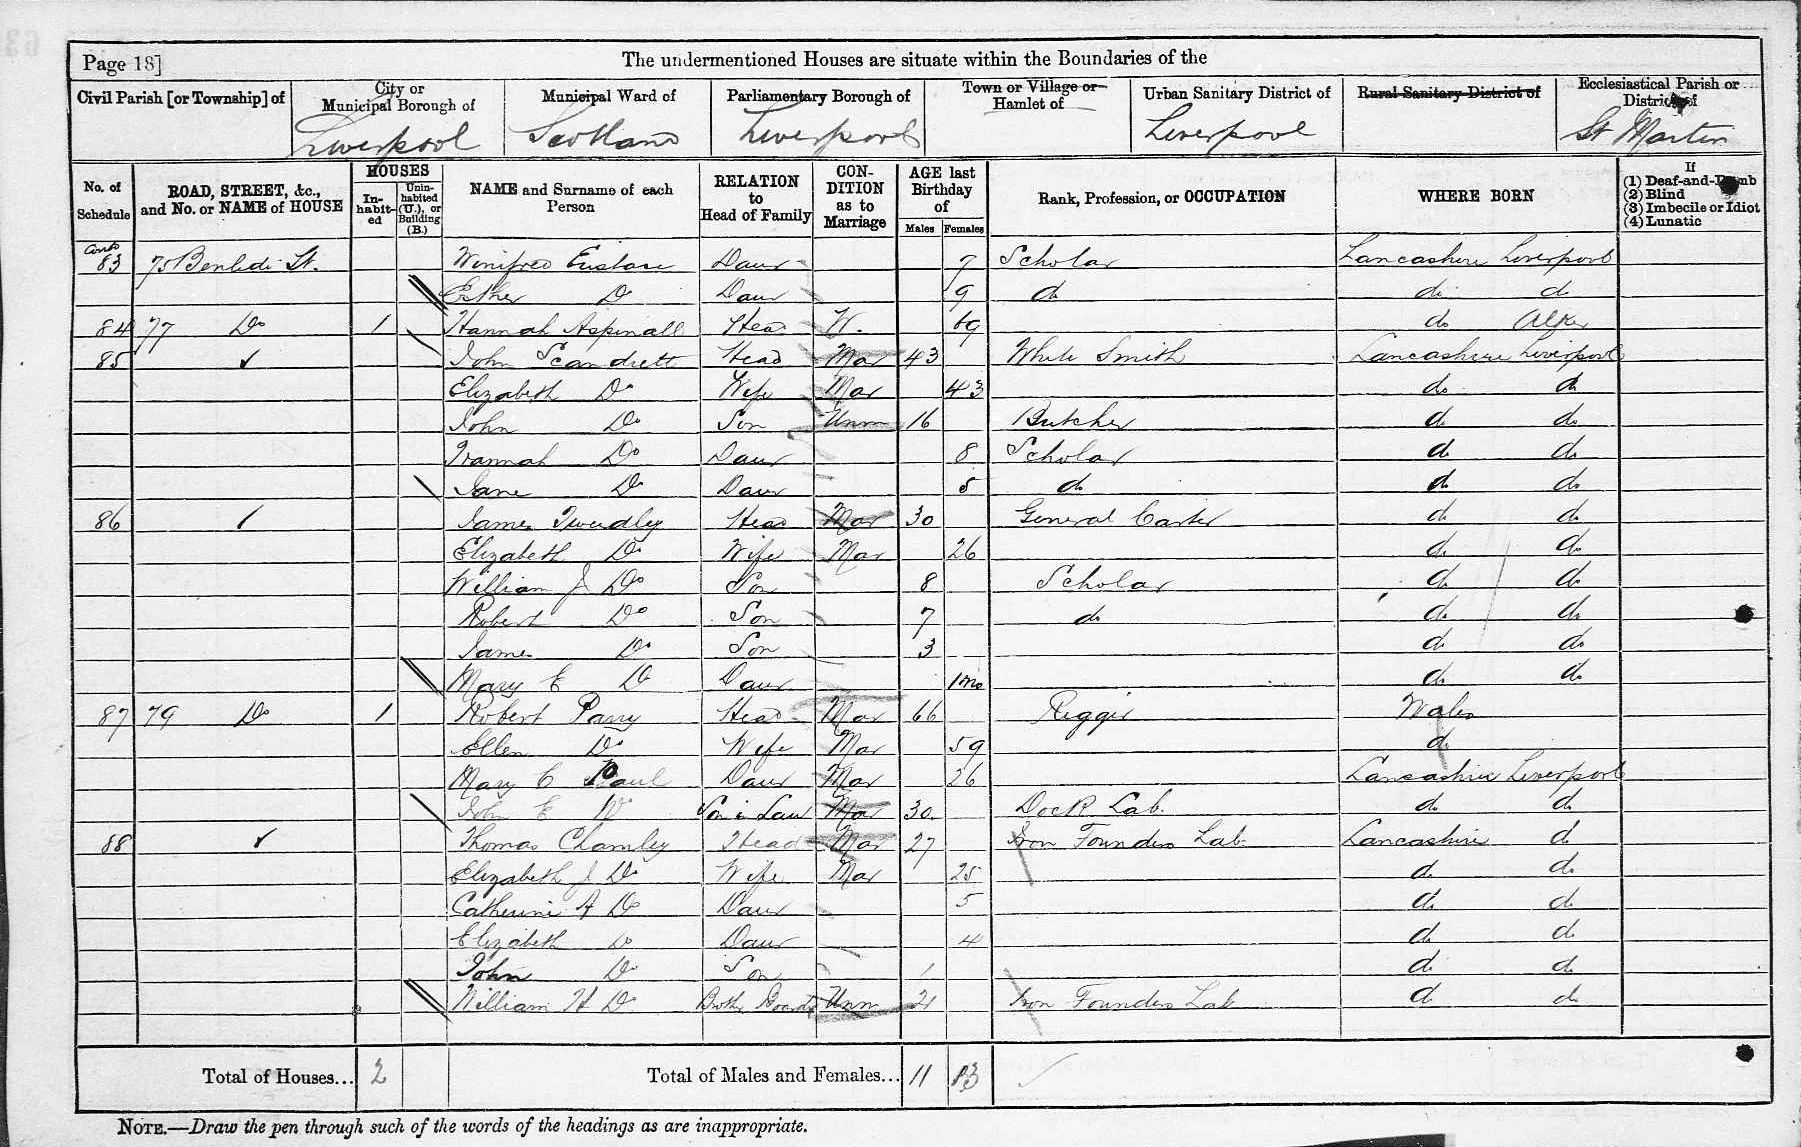 Page 18]
The undermentioned Houses are situate within the Boundaries of the
Civil Parish [or Township] of
City or Municipal Borough of
Liverpool
Municipal Ward of
Scotland
Parliamentary Borough of
Liverpool
Town or Village or Hamlet of
Urban Sanitary District of
Liverpool
Rural Sanitary District of
Ecclesiastical Parish or District of
St Martin
No. of Schedule
ROAD, STREET, &c., and No. or NAME of HOUSE
HOUSES
In-habit-ed
Unin-habited (U.), or Building (B.)
NAME and Surname of each Person
RELATION to Head of Family
CON-DITION as to Marriage
AGE last Birthday of
Males
Females
Rank, Profession, or OCCUPATION
WHERE BORN
If
(1) Deaf-and-Dumb
(2) Blind
(3) Imbecile or Idiot
(4) Lunatic
83 75 Benledi St. Winifred Eustace Daur 7 Scholar Lancashire Liverpool
Esther Do Daur 9 do do do
84 77 Do 1 Hannah Aspinall Head W. 69 do
85 John Scandrett Head Mar 43 White Smith Lancashire Liverpool
Elizabeth Do Wife Mar 43 do do
John Do Son Unm 16 Butcher do do
Hannah Do Daur 8 Scholar do do
Jane Do Daur 5 do do do
86 James Head Mar 30 General Carter do do
Elizabeth Do Wife Mar 26 do do
William J Do Son 8 Scholar do do
Robert Do Son 7 do do do
James Do Son 3 do do
Mary E Do Daur 1mo do do
87 79 Do 1 Robert Parry Head Mar 66 Rigger Wales
Ellen Do Wife Mar 59 do
Mary C Paul Daur Mar 26 Lancashire Liverpool
John E Do Son in Law Mar 30 Dock Lab. do do
88 Thomas Chamley Head Mar 27 Iron Founders Lab Lancashire do
Elizabeth J Do Wife Mar 25 do do
Catherine A Do Daur 5 do do
Elizabeth Do Daur 4 do do
John Do Son 1 do do
William H Do Broth Boarder Unm 21 Iron Founders Lab do do
Total of Houses... 2
Total of Males and Females... 11 13
NOTE.—Draw the pen through such of the words of the headings as are inappropriate.